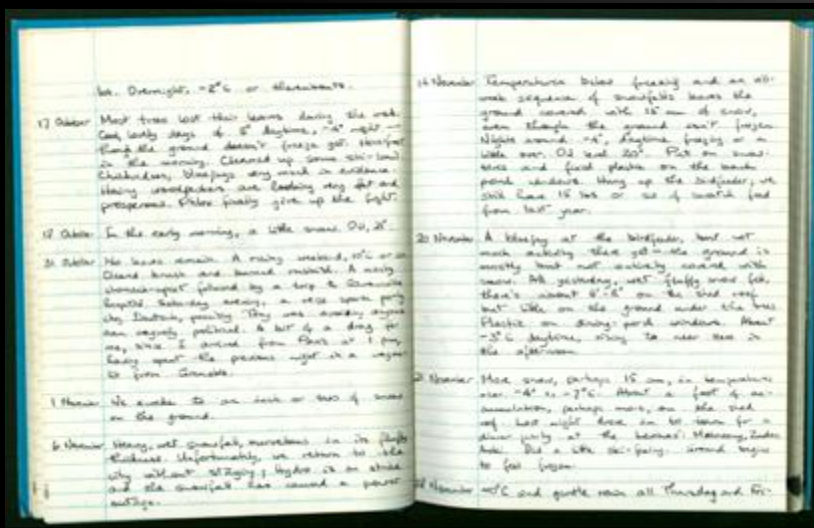 lot. Overnight, -2°C or thereabouts.
17 October Most trees lost their leaves during the week.
Cool, days of 5° daytime, -4° night —
though the ground doesn't freeze yet. Hoarfrost
in the morning. Cleaned up some
Chickadees, bluejays very much in evidence.
Hairy woodpeckers are looking very fat and
prosperous. finally give up the fight.
In the early morning, a little snow. Oil, 21".
31 October No leaves remain. A rainy weekend, 10°C or so.
Cleared brush and burned rubbish. A nasty
stomach-upset followed by a trip to
Hospital. Saturday evening, a party
very political. A bit of a drag for
me, since I arrived from Paris at 1 pm,
having spent the previous night in a
from Grenoble.
1 November We awake to an inch or two of snow
on the ground.
6 November Heavy, wet snowfall, marvelous in its fluffy
thickness. Unfortunately, we return to the
city without staying; Hydro is on strike
and the snowfall has caused a power
outage.
14 November Temperatures below freezing and an all-
week sequence of snowfalls leaves the
ground covered with 15 cm of snow,
even though the ground isn't frozen.
Nights around -4°, daytime freezing or a
little over. Oil level 20". Put on snow-
tires and fixed plastic on the
porch windows. Hung up the birdfeeder; we
still have 15 lbs or so of seed
from last year.
20 November A bluejay at the birdfeeder, but not
much activity there yet — the ground is
mostly but not entirely covered with
snow. All yesterday, wet fluffy snow fell,
there's about on the shed roof
but little on the ground under the trees
Plastic on dining-porch windows. About
-3°C daytime, rising to near zero in
the afternoon.
21 November More snow, perhaps 15 cm, in temperatures
near -4° to -7°C. About a foot of ac-
cumulation, perhaps more, on the shed
roof. Last night drove in to town for a
dinner party at the
Did a little ski-. Ground begins
to feel frozen.
November and gentle rain all Thursday and Fri-